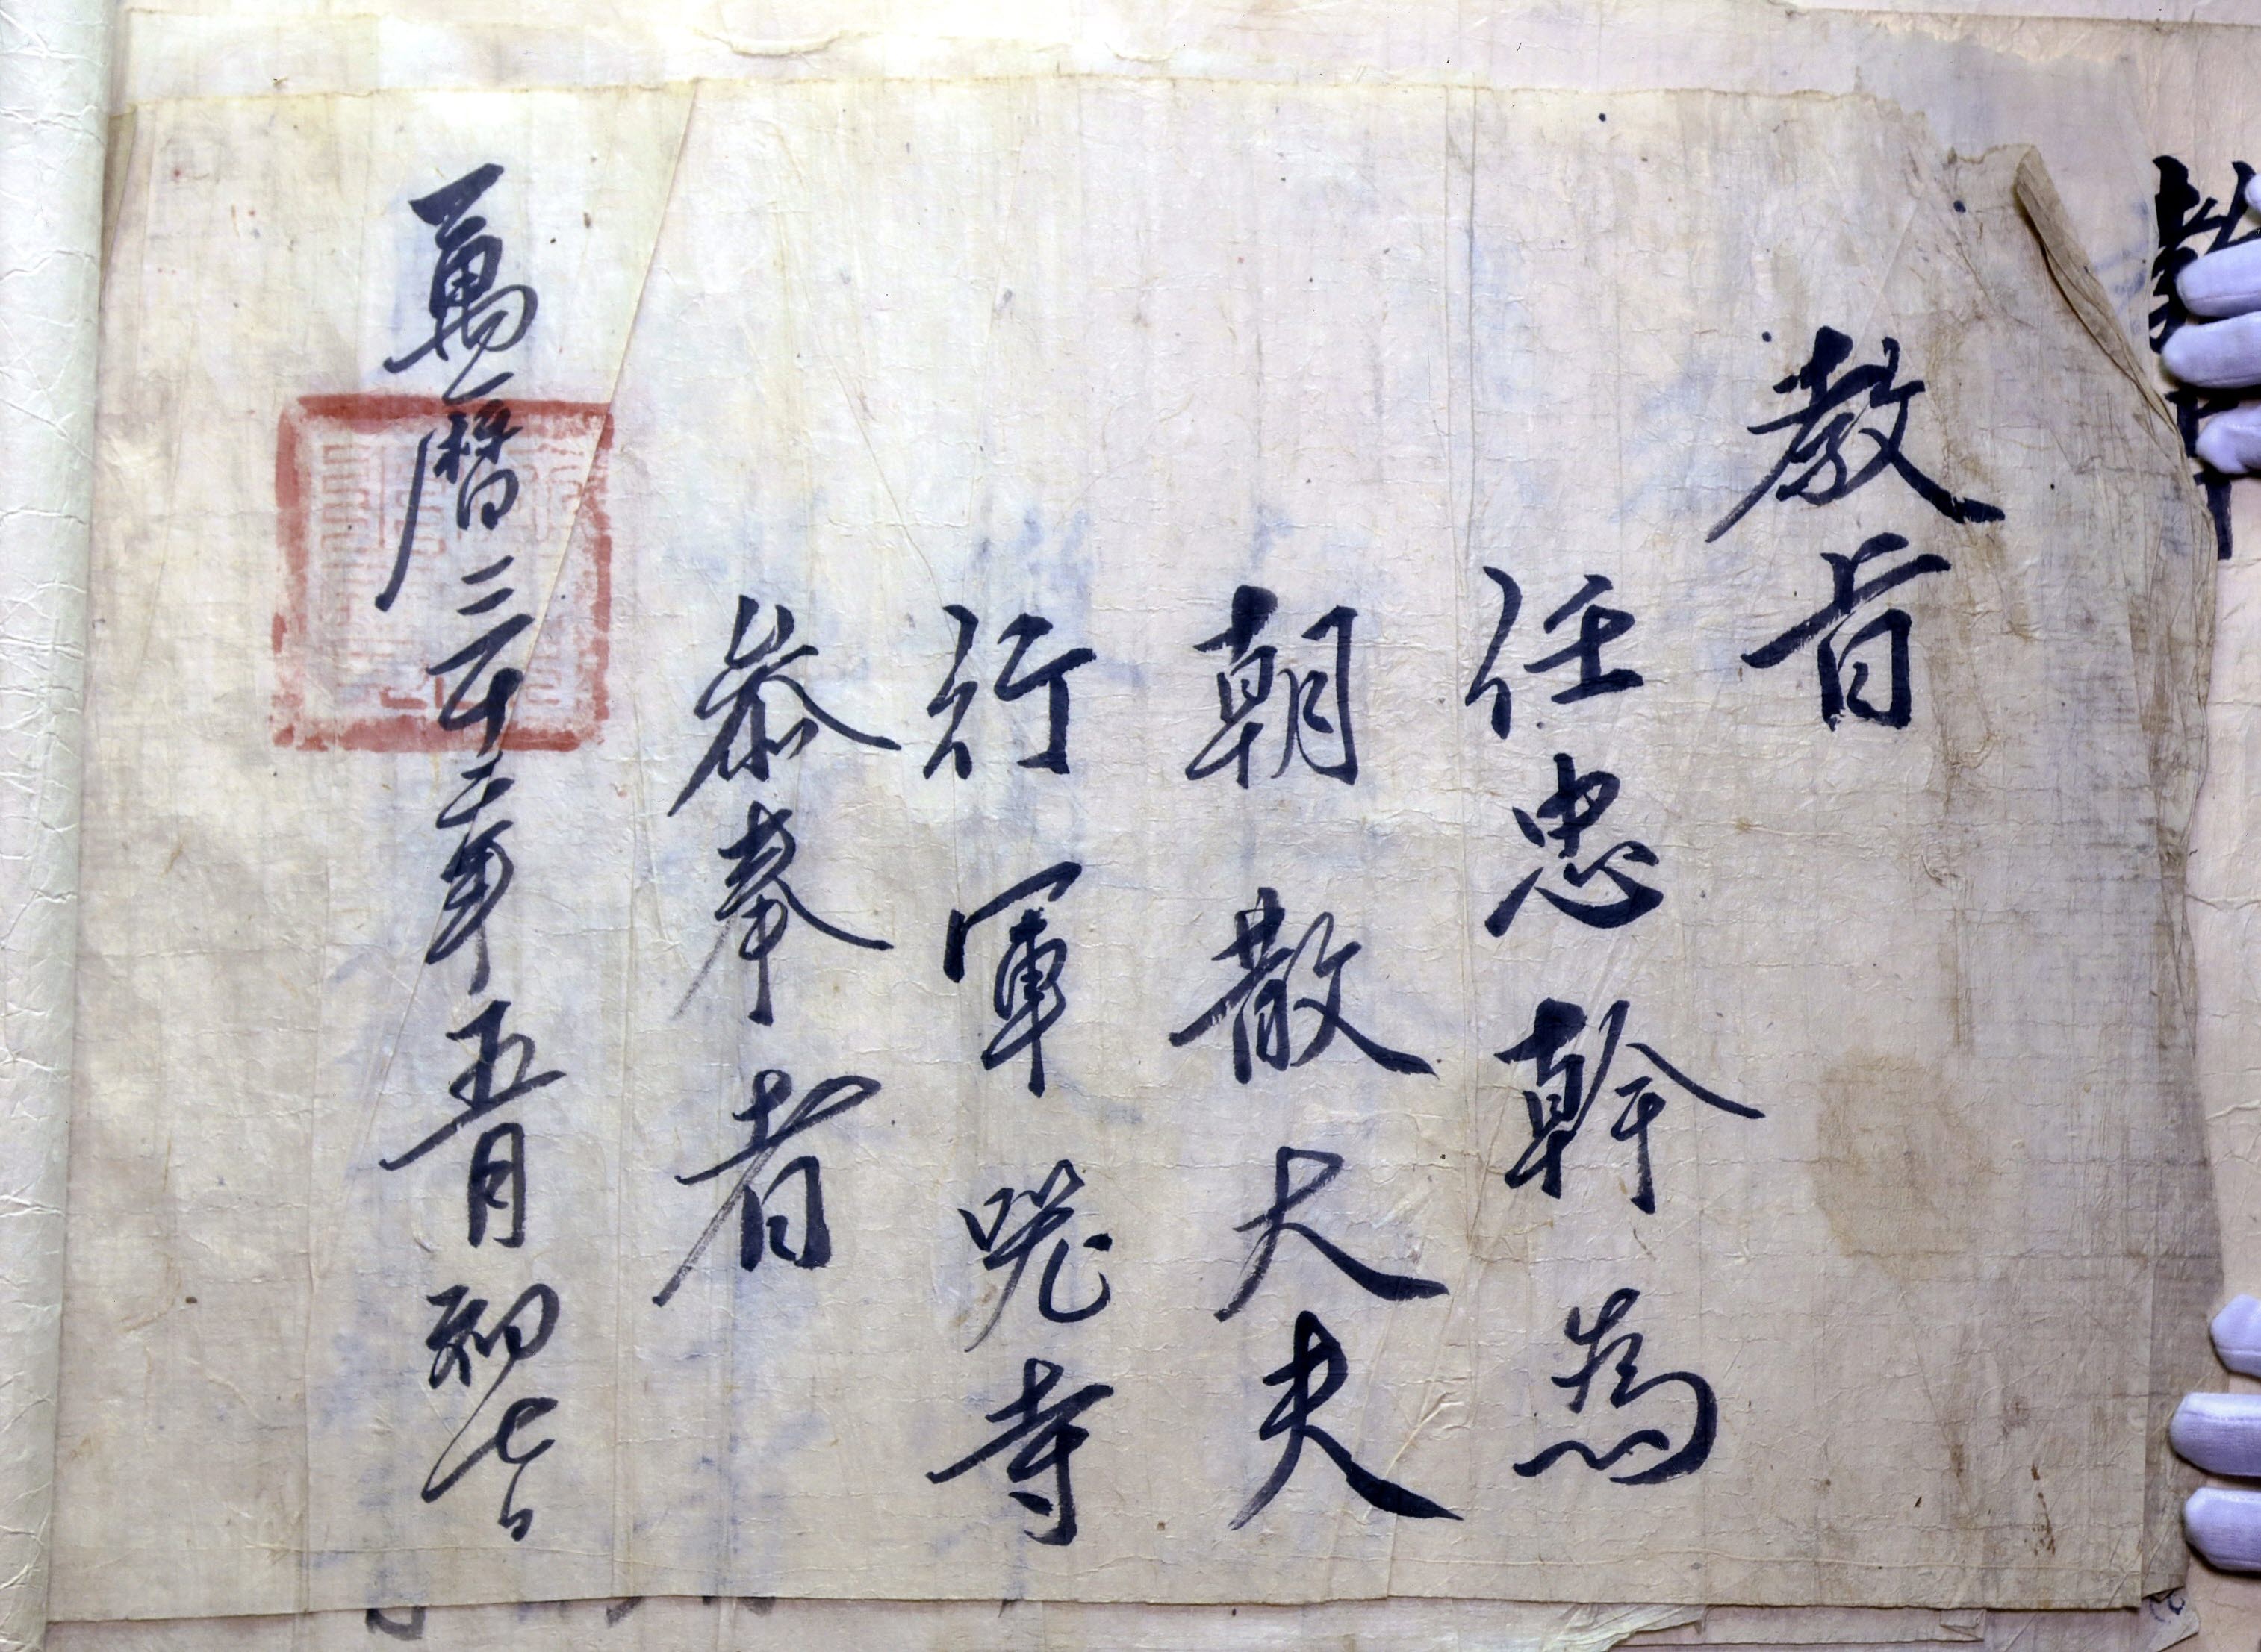 教旨
任忠幹為
朝散大夫
行軍器寺
叅奉者
萬曆三十二年五月初七日